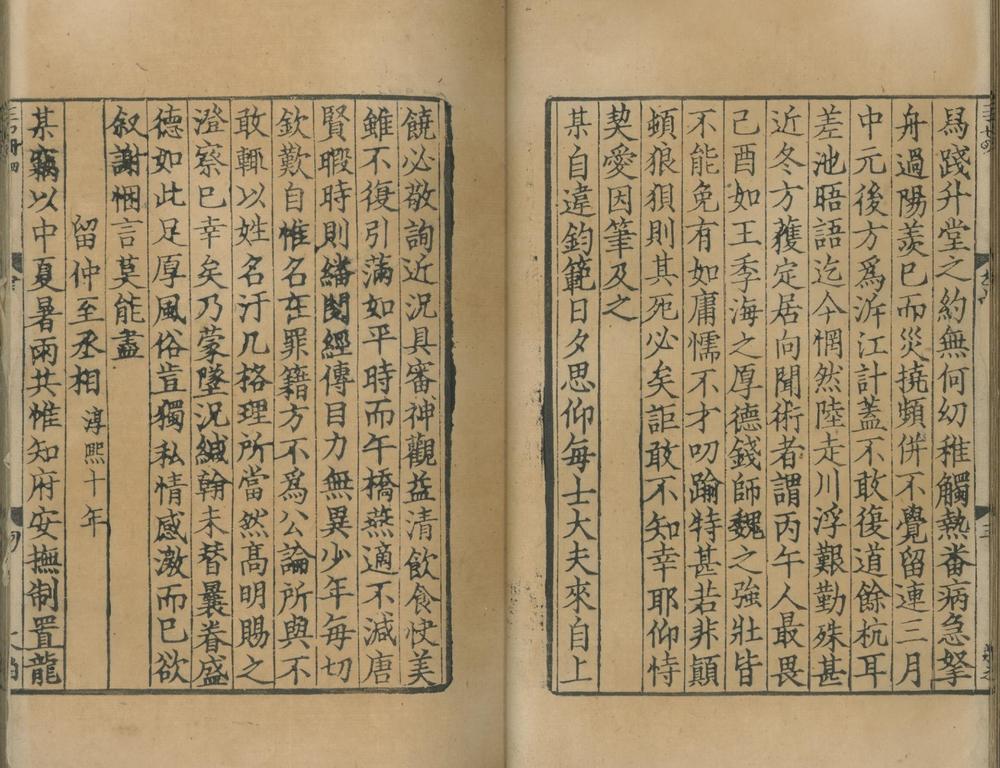 爲踐升堂之約無何幼稚觸熱畨病急拏
舟過陽羡巳而災撓頻併不覺留連三月
中元後方爲泝江計蓋不敢復道餘杭耳
差池晤語迄今惘然陸走川浮艱勤殊甚
近冬方獲定居向聞術者謂丙午人最畏
己酉如王季海之厚德錢師魏之強壯皆
不能免有如庸懦不才叨踰特甚若非顛
頓狼狽則其死必矣詎敢不知幸耶仰恃
契愛因筆及之
某自違鈞範日夕思仰每士大夫來自上
饒必敬詢近况具審神觀益清飲食快美
雖不復引滿如平時而午橋燕適不減唐
賢暇時則繙閱經傳目力無異少年每切
欽歎自惟名在罪籍方不爲公論所與不
敢輒以姓名汙几格理所當然高明賜之
澄察巳幸矣乃蒙墜况緘翰未替曩眷盛
德如此足厚風俗豈獨私情感激而巳欲
叙謝悃言莫能盡
留仲至丞相 淳熙十年
某竊以中夏暑雨共惟知府安撫制置龍